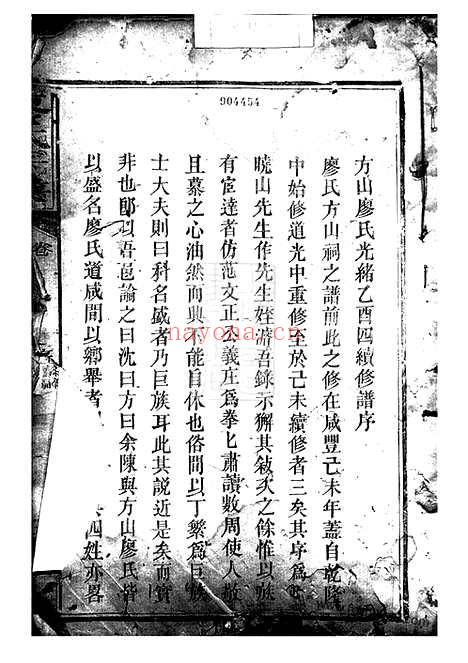 904454
方山廖氏光緒乙酉四續修譜序
廖氏方山祠之譜前此之修在咸豐己未年蓋自乾隆
中始修道光中重修至於己未續修者三矣其序爲
曉山先生作先生姪濬吾錄示獬其敍次之餘惟以族
有宦達者仿范文正公義庄爲拳匕肅讀數周使人敬
且慕之心油然而興不能自休也俗間以丁繁爲巨族
士大夫則曰科名盛者乃巨族耳此其說近是矣而實
非也卽以吾邑論之曰沈曰方曰余陳與方山廖氏皆
以盛名廖氏道咸間以鄉舉者 四姓亦畧
卷
nayona.cn